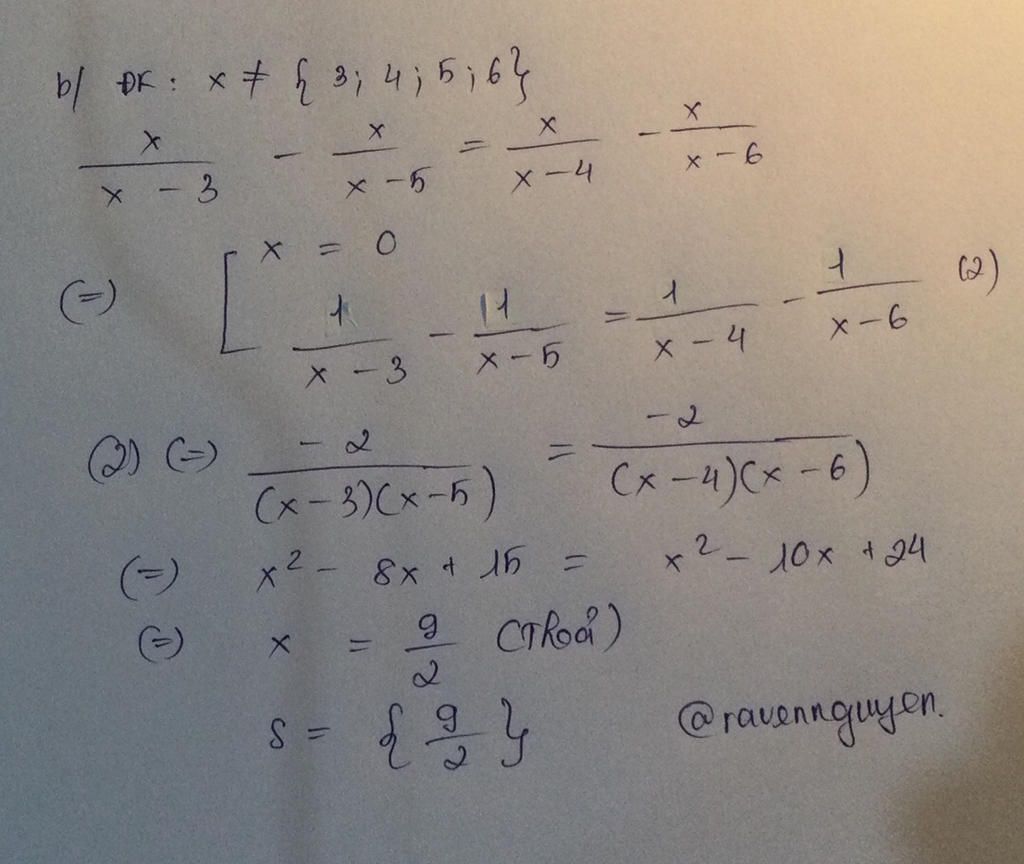 b/ ĐK : x ≠ { 3 ; 4 ; 5 ; 6 }
x/(x - 3) - x/(x - 5) = x/(x - 4) - x/(x - 6)
(=) [ x = 0
1/(x - 3) - 1/(x - 5) = 1/(x - 4) - 1/(x - 6) (2)
(2) (=) -2/((x - 3)(x - 5)) = -2/((x - 4)(x - 6))
(=) x² - 8x + 15 = x² - 10x + 24
(=) x = 9/2 (Thoả)
S = { 9/2 } @ravennguyen.